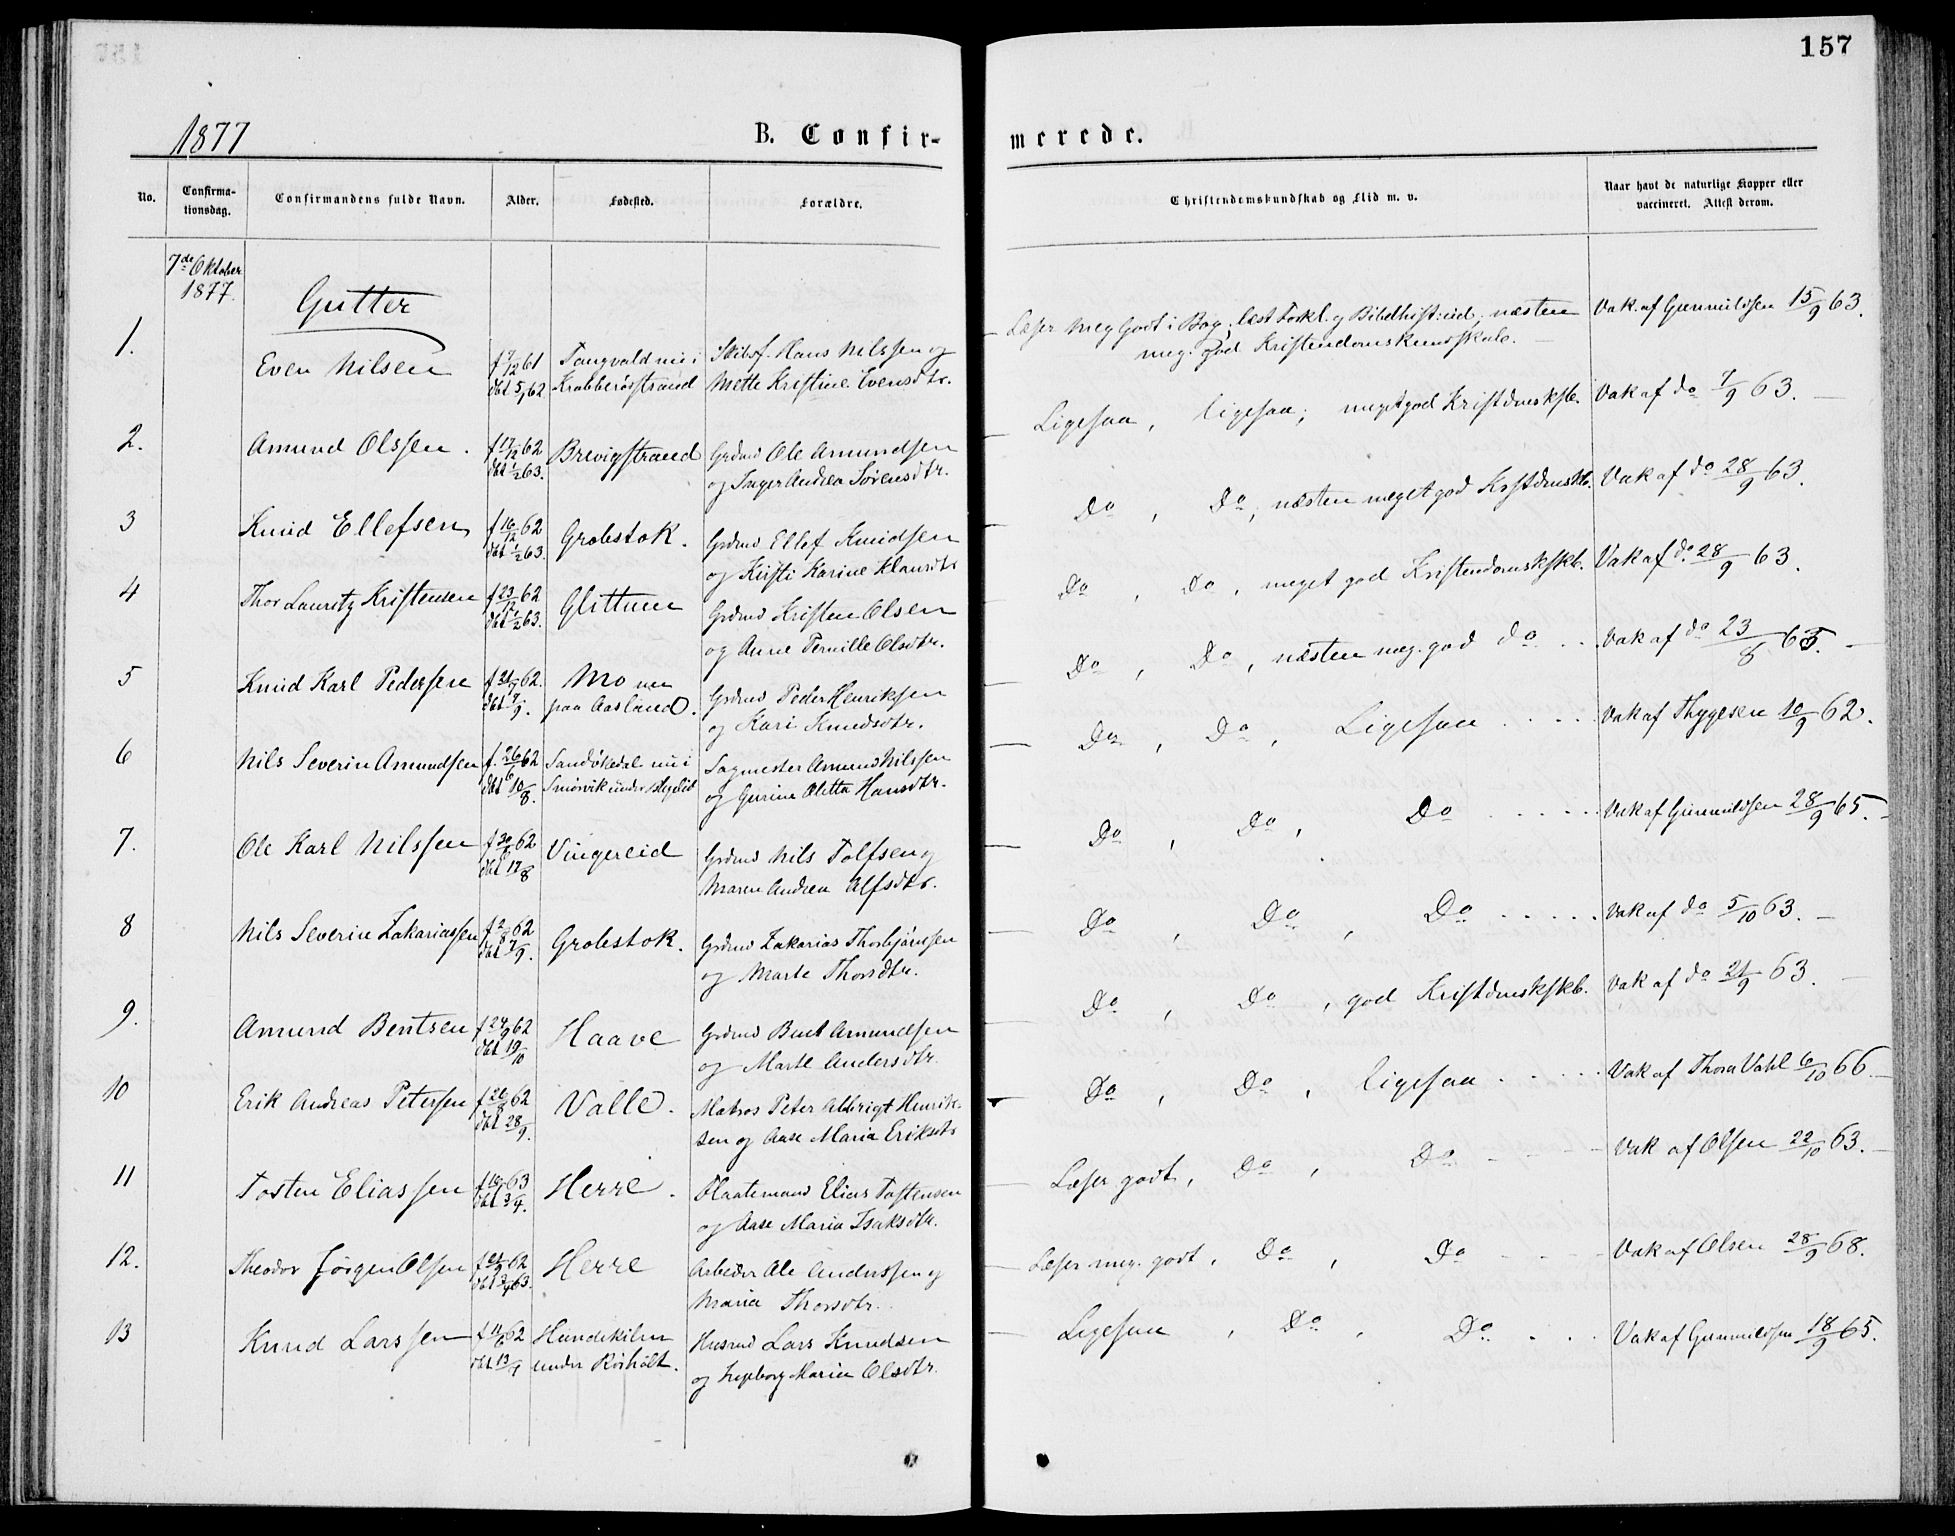 157
1877
B. Confir-
merede.
No.
Confirma-
tionsdag.
Confirmandens fulde Navn.
Alder.
Fødested.
Forældre.
Christendomskundskab og Flid m. v.
Naar havt de naturlige Kopper eller
vaccineret. Attest derom.
7de Oktober
1877.
Gutter
1.
Even Nilsen
f 7/12 61
dbt 5/1 62
Tangvald nu i
Krabberøstrand
Skibsf. Hans Nilssen og
Mette Kristine Evensdtr.
Læser meg godt i Bog; læst Forkl. og Bibelhist: ud, næsten
meg. god Kristendomskundskab.
Vak. af Gunnuldsen 15/9 63.
2.
Amund Olssen.
f 17/12 62
dbt 1/2 63.
Brevigstrand
Grdmd Ole Amundsen
og Inger Andrea Sørensdtr.
Ligesaa, ligesaa; meget god Kristdmskskb.
Vak af do 7/9 63.
3
Knud Ellefsen
f 16/12 62
dbt 1/2 63.
Grobstok.
Grdmd Ellef Knudsen
og Kirsti Karine Klausdtr
Do, Do, næsten meget god Kristdmskb.
Vak af do 28/9 63.
4
Thor Lauritz Kristensen
f 23/12 62
dbt 1/2 63.
Glittum
Grdmd Kristen Olsen
og Anne Pernille Olsdtr.
Do, Do, meget god Kristendomskskb.
Vak af do. 28/9 63.
5
Knud Karl Pedersen
f 21/7 62.
dbt 7/9.
Mo nu
paa Aasland.
Grdmd Peder Henriksen
og Kari Knudsdtr.
Do, Do, næsten meg. god do . .
Vak af do 23/8 63.
6
Nils Severin Amundsen
f. 26/6 62
dbt 10/8.
Sandøkedal nu i
Smørvik under Stegelid
Sagmester Amund Nilssen
og Gurine Oletta Hansdtr.
Do, Do, Ligesaa . . . .
Vak af Thygesen 10/9 62.
7.
Ole Karl Nilssen
f 30/6 62
dbt 17/8
Vingereid
Grdmd Nils Tolfsen og
Maren Andrea Alfsdtr.
Do, Do, Do . . . . .
Vak af Gunnuldsen 28/9 65.
8
Nils Severin Zakariassen
f 2/8 62
dbt 7/9.
Grobstok.
Grdmd Zakarias Thorbjørnsen
og Marte Thorsdtr.
Do, Do, Do . . . . .
Vak af do 5/10 63.
9.
Amund Bentsen
f 24/9 62
dbt 19/10
Haave
Grdmd Bent Amundsen
og Marte Andersdtr.
Do, Do, god Kristdmskskb.
Vak af do 21/9 63.
10
Erik Andreas Petersen
f 26/8 62
dbt 28/9.
Valle.
Matros Peter Albrigt Henrik-
sen og Aase Maria Eriksdtr
Do, Do, ligesaa . . . . .
Vak af Thora Vahl 6/10 66
11
Tosten Eliassen
dbt 3/4.
Herre.
Flaatemand Elias Tostensen
og Aase Maria Isaksdtr.
Læser godt, Do, Do
Vak af Olsen 22/10 63.
12.
Theodor Jørgen Olsen
f 21/9 62
dbt 3/4 63.
Herre
Arbeider Ole Anderssen og
Maria Thorsdtr.
Læser meg. godt, Do, Do
Vak af Olsen 28/9 68.
13
Knud Larssen
f 11/6 62
dbt 13/9
Hundekilen
under Rørholt.
Husmd Lars Knudsen
og Ingeborg Marie Olsdtr.
Ligesaa, Do, Do . . .
Vak af Gunnuldsen 18/9 65.